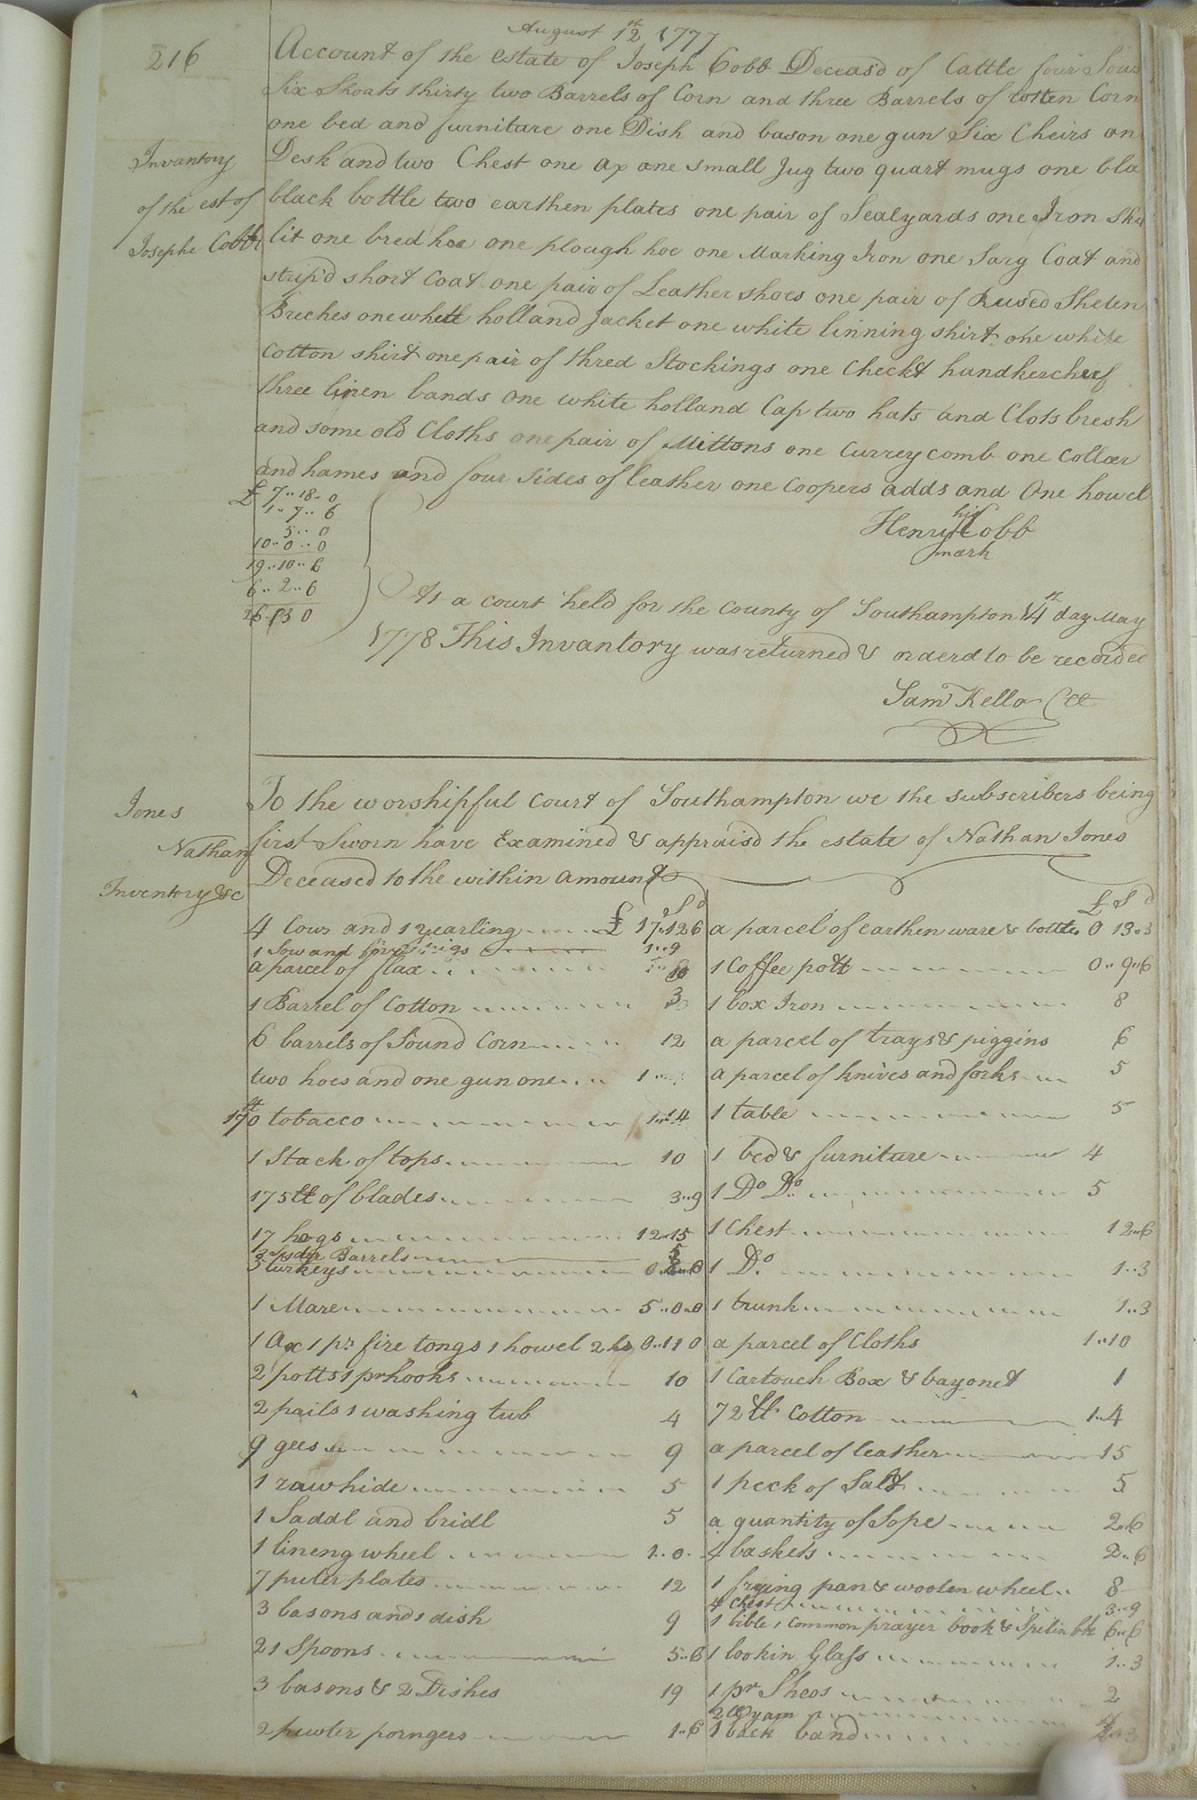 216
August 12th 1777
Account of the Estate of Joseph Cobb Deceasd of Cattle four Sows
Six Shoats thirty two Barrels of Corn and three Barrels of rotten Corn
one bed and furniture one Dish and bason one gun Six Cheirs on
Invantory
of the est of
Josephe Cobb
Desk and two Chest one ax one small Jug two quart mugs one bla
black bottle two earthen plates one pair of Sealyards one Iron Ski
lit one bred hoe one plough hoe one Marking Iron one Sarg Coat and
strip'd short Coat one pair of Leather shoes one pair of
Breches one white holland Jacket one white linning shirt one white
Cotton shirt one pair of thred Stockings one Checkt handkercheif
three linen bands one white holland Cap two hats and Clots bresh
and some old Cloths one pair of Mittons one Currey comb one Collar
and hames and four Sides of leather one Coopers adds and One howel
£ 7..18..0
1..7..6
5..0
10..0..0
19..10..6
6..2..6
his
Henry H Cobb
mark
At a court held for the County of Southampton 14th day May
1778 This Invantory was returned & orderd to be recorded
Sam Kello CCC
Jones
Nathan
Inventory &c
To the worshipful Court of Southampton we the subscribers being
first Sworn have Examined & appraisd the estate of Nathan Jones
Deceased to the within amount
£ S d
4 Cows and 1 yearling £ 17..12 6
1 Sow and 1..9
a parcel of flax 10
1 Barrel of Cotton 3
6 barrels of Sound Corn 12
two hoes and one gun one 1
170 lt tobacco 1..14
1 Stack of tops 10
175 lt of blades 3..9
17 hogs 12..15
Barrels 5
5 turkeys
1 Mare 5..0..0
1 Ax 1 pr fire tongs 1 howel 2 0..11 0
2 potts 1 pr hooks 10
2 pails 1 washing tub 4
9 gees 9
1 rawhide 5
1 Saddl and bridl 5
1 lineng wheel 1..0
7 puter plates 12
3 basons and 1 dish 9
21 Spoons 5..6
3 basons & 2 Dishes 19
2 pewter porngers 1..6
£ S d
a parcel of earthen ware & bottles 0 13..3
1 Coffee pott 0..9..6
1 box Iron 8
a parcel of trays & piggins 6
a parcel of knives and forks 5
1 table 5
1 bed & furniture 4
1 Do Do 5
1 Chest 12..6
1 Do 1..3
1 trunk 1..3
a parcel of Cloths 1..10
1 Cartouch Box & bayonet 1
72 lt Cotton 1..4
a parcel of leather 15
1 peck of Salt 5
a quantity of Sope 2..6
4 baskets 2..6
1 frying pan & woolen wheel 8
4 Chest 3..9
1 bible 1 Common prayer book & Spelin bk 6..6
1 lookin Glass 1..3
1 pr Shoos 2
yarn
1 back band